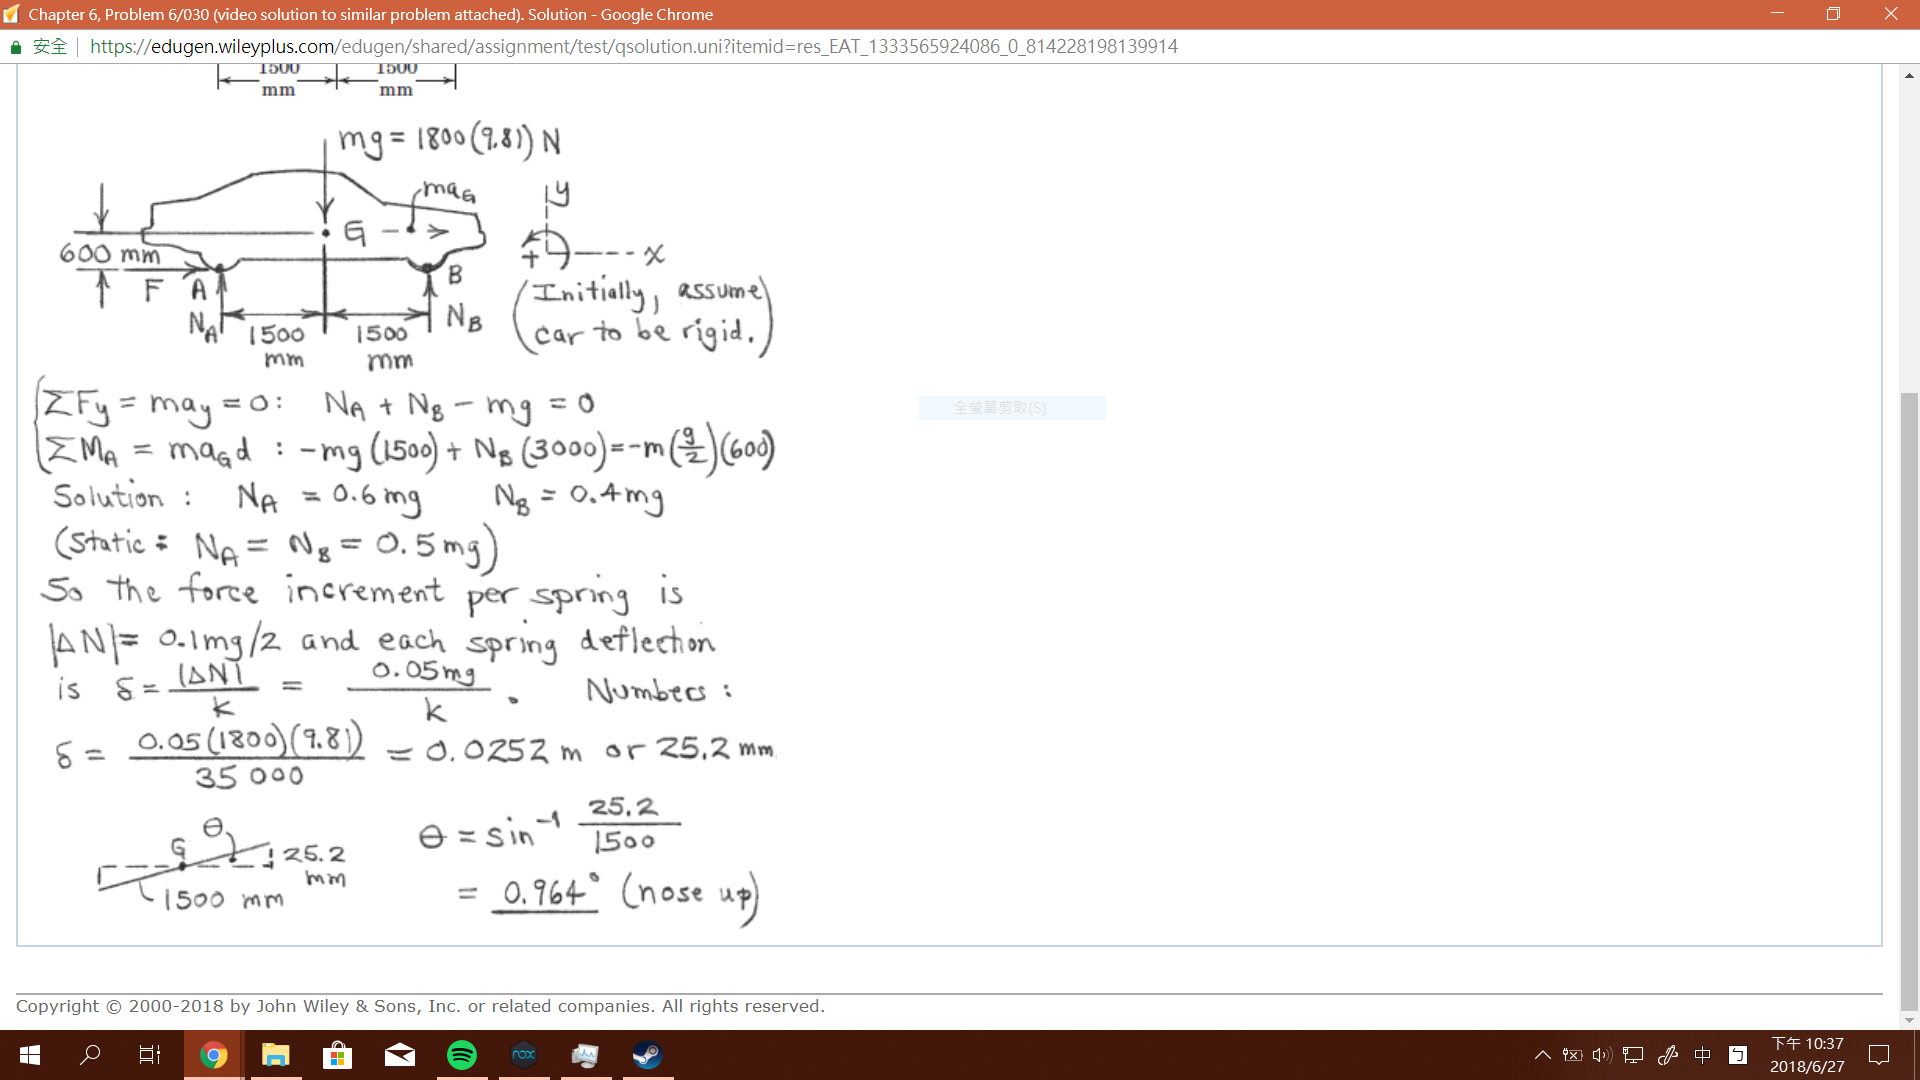 Chapter 6, Problem 6/030 (video solution to similar problem attached). Solution - Google Chrome
安全 https://edugen.wileyplus.com/edugen/shared/assignment/test/qsolution.uni?itemid=res_EAT_1333565924086_0_814228198139914
1500 1500
mm mm
mg = 1800(9.81) N
maG
y
G
x
+
600 mm
F A B
NA NB
1500 1500
mm mm
(Initially, assume
car to be rigid.)
ΣFy = may = 0: NA + NB - mg = 0
全螢幕剪取(S)
ΣMA = maGd : -mg(1500) + NB(3000) = -m(g/2)(600)
Solution : NA = 0.6mg NB = 0.4mg
(Static : NA = NB = 0.5mg)
So the force increment per spring is
|ΔN| = 0.1mg/2 and each spring deflection
is δ = |ΔN|/k = 0.05mg/k . Numbers :
δ = 0.05(1800)(9.81)/35 000 = 0.0252 m or 25.2 mm
θ = sin⁻¹ 25.2/1500
θ
G
25.2
mm
1500 mm
= 0.964° (nose up)
Copyright © 2000-2018 by John Wiley & Sons, Inc. or related companies. All rights reserved.
nox
中
下午 10:37
2018/6/27